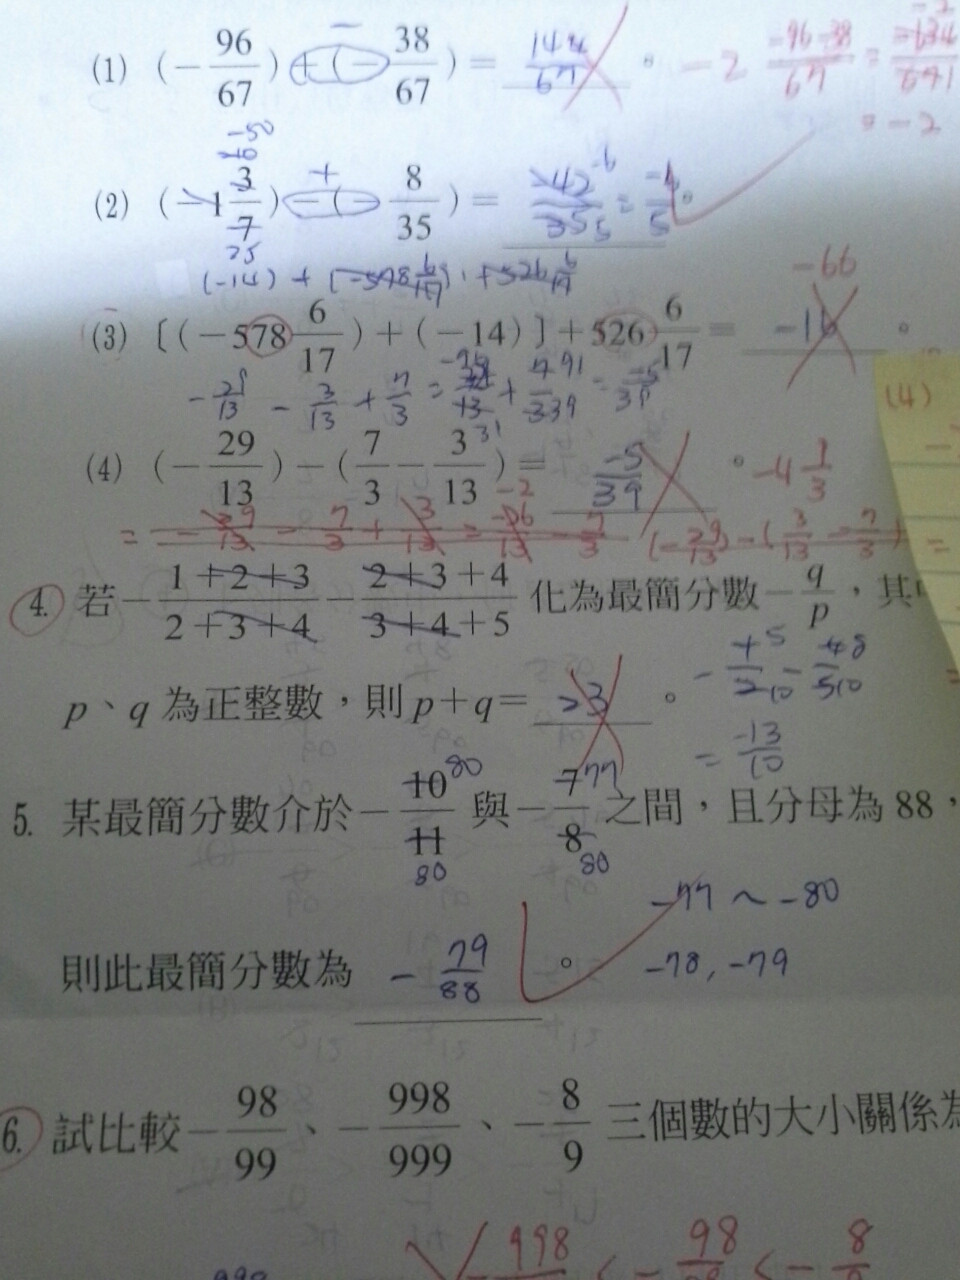 (1) (−96/67)+(−38/67)= 144/67 。 −2 (−96−38)/67 =
= −2
−50
(2) (−1 3/7)−(−8/35)= −42/35 = −6/5 。
(−14)+(−578 6/17)+526 6/17
−66
(3) [(−578 6/17)+(−14)]+526 6/17= −16 。
−29/13 − 3/13 + 7/3 = = −5/39
(4)
(4) (−29/13)−(7/3−3/13)= −5/39 。 −4 1/3
= −29/13 − 7/3 + 3/13 = −26/13 − 7/3 (−29/13)−(3/13−7/3) =
4. 若−(1+2+3)/(2+3+4)−(2+3+4)/(3+4+5) 化為最簡分數−q/p,其
p、q 為正整數,則 p+q= 23 。 − 5/10 − 8/10
= −13/10
5. 某最簡分數介於−10/11 與−7/8 之間,且分母為 88,
80 77 80 80
−77 ~ −80
則此最簡分數為 −79/88 。 −78, −79
6. 試比較−98/99、−998/999、−8/9 三個數的大小關係為
−998 < −98 < −8